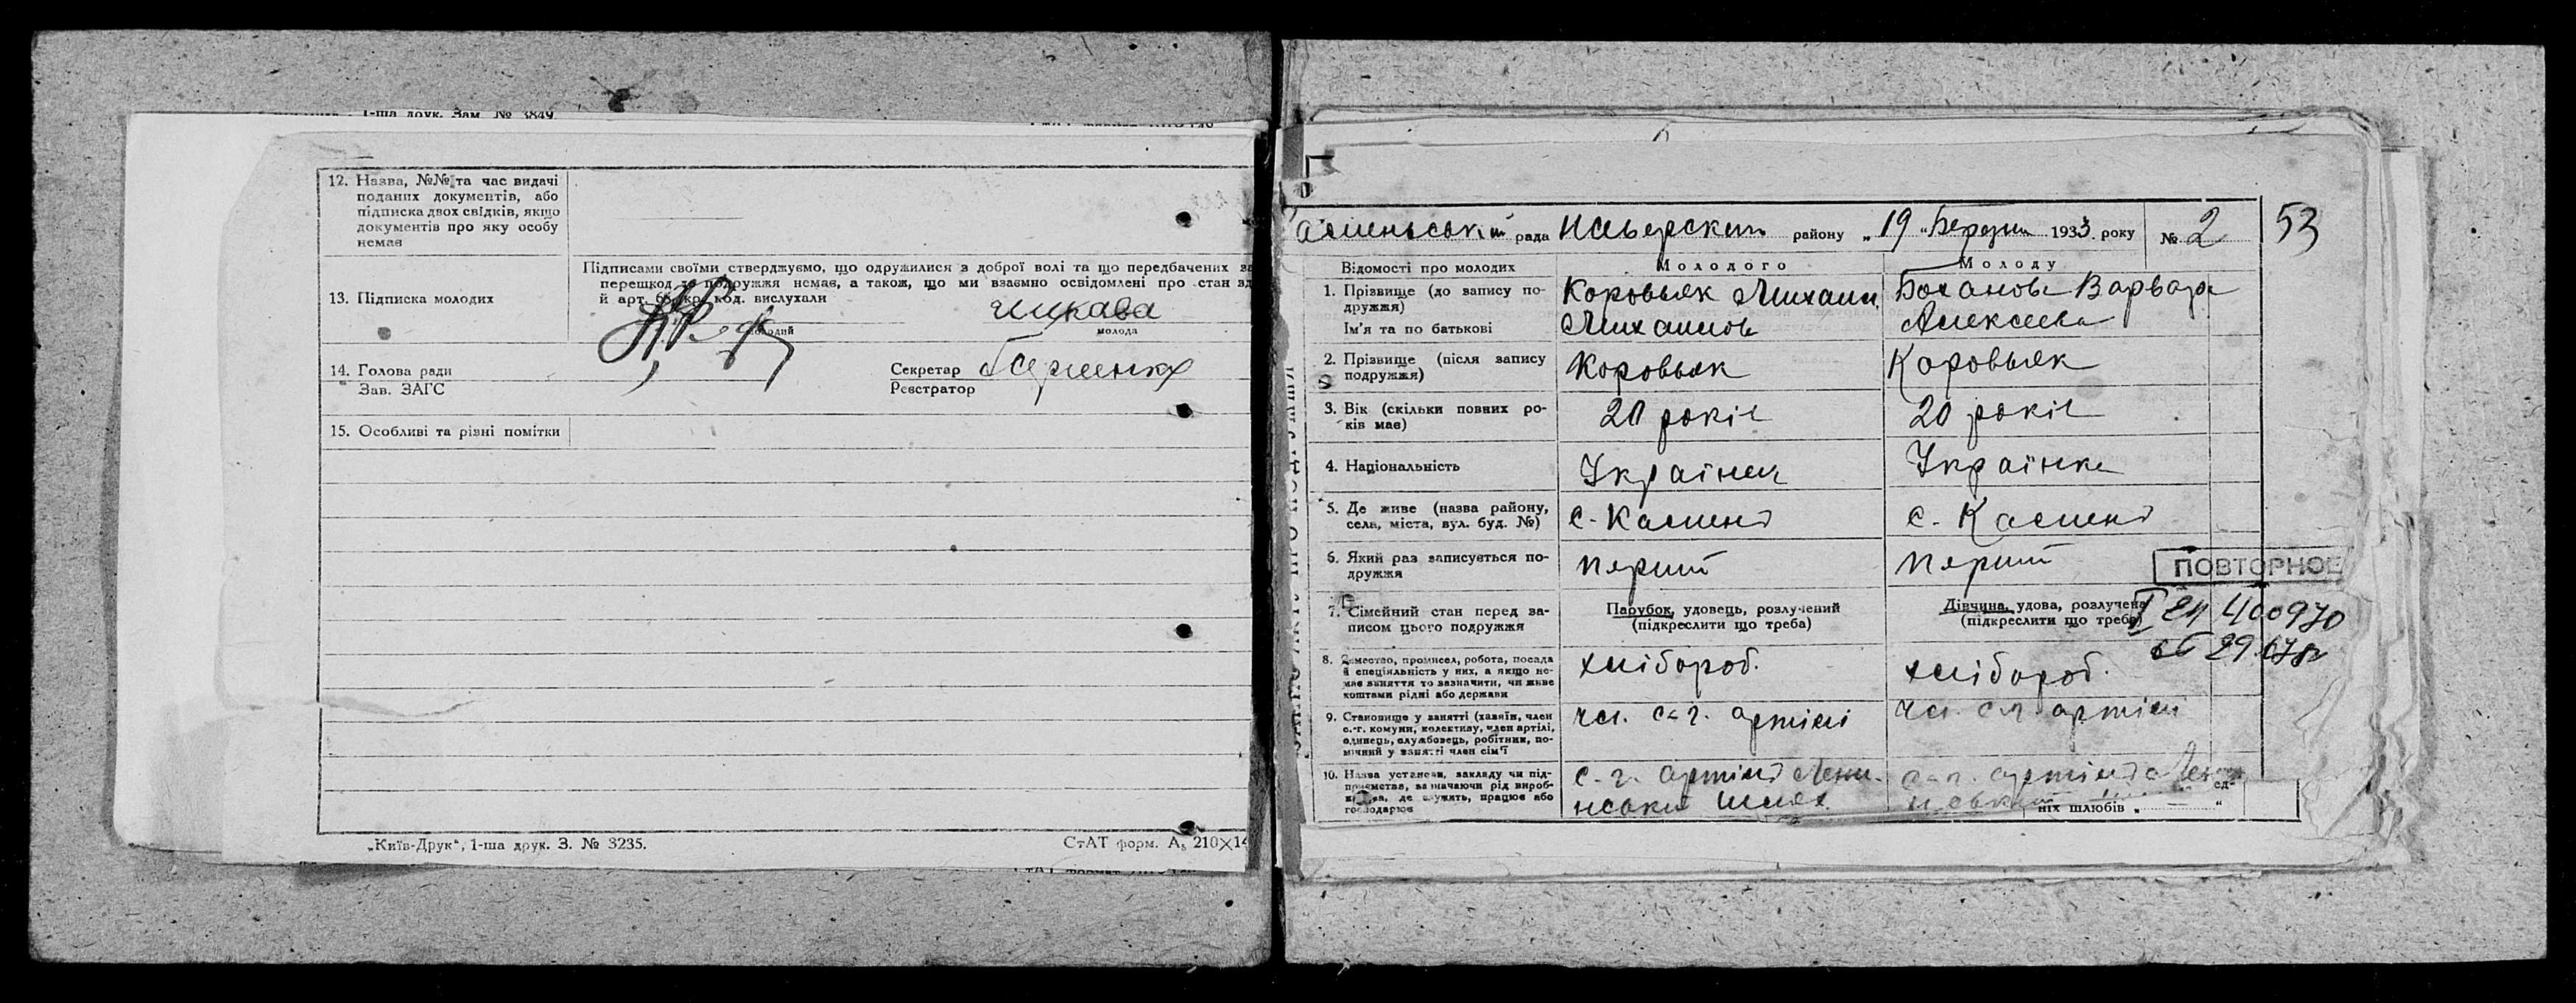 1-ша друк. Зам. № 3849
12. Назва, №№ та час видачі
поданих документів, або
підписка двох свідків, якщо
документів про яку особу
немає
Підписами своїми стверджуємо, що одружилися з доброї волі та що передбачених
перешкод до подружжя немає, а також, що ми взаємно освідомлені про стан
й арт. кр. код. вислухали
13. Підписка молодих
молодий
молода
14. Голова ради
Зав. ЗАГС
Секретар
Реєстратор
15. Особливі та різні помітки
„Київ-Друк“, 1-ша друк. З. № 3235.
СтАТ форм. А₅ 210×14
рада
району „19 „Березня 1933 року
№ 2
53
Відомості про молодих
Молодого
Молоду
1. Прізвище (до запису по-
дружжя)
Ім'я та по батькові
Коровьяк Михаил
Михаилов
Боханова Варвара
Алексеева
2. Прізвище (після запису
подружжя)
Коровьяк
Коровьяк
3. Вік (скільки повних ро-
ків має)
20 років
20 років
4. Національність
Українец
Українка
5. Де живе (назва району,
села, міста, вул. буд. №)
с. Камень
с. Камень
6. Який раз записується по-
дружжя
перший
перший
ПОВТОРНОЕ
7. Сімейний стан перед за-
писом цього подружжя
Парубок, удовець, розлучений
(підкреслити що треба)
Дівчина, удова, розлучена
(підкреслити що треба)
400970
8. Ремество, промисел, робота, посада
й спеціяльність у них, а якщо не-
має заняття то зазначити, чи живе
коштами рідні або держави
хлібороб.
хлібороб.
9. Становище у занятті (хазяїн, член
с.-г. комуни, колективу, член артілі,
одинець, службовець, робітник, по-
мічний у занятті член сім'ї
чл. с-г. артілі
чл. с-г. артілі
10. Назва установи, закладу чи під-
приємства, зазначаючи рід вироб-
де служить, працює або
господарює
с.-г. артіль Лени-
нський шлях
с-г. артіль
ніх шлюбів „ — “